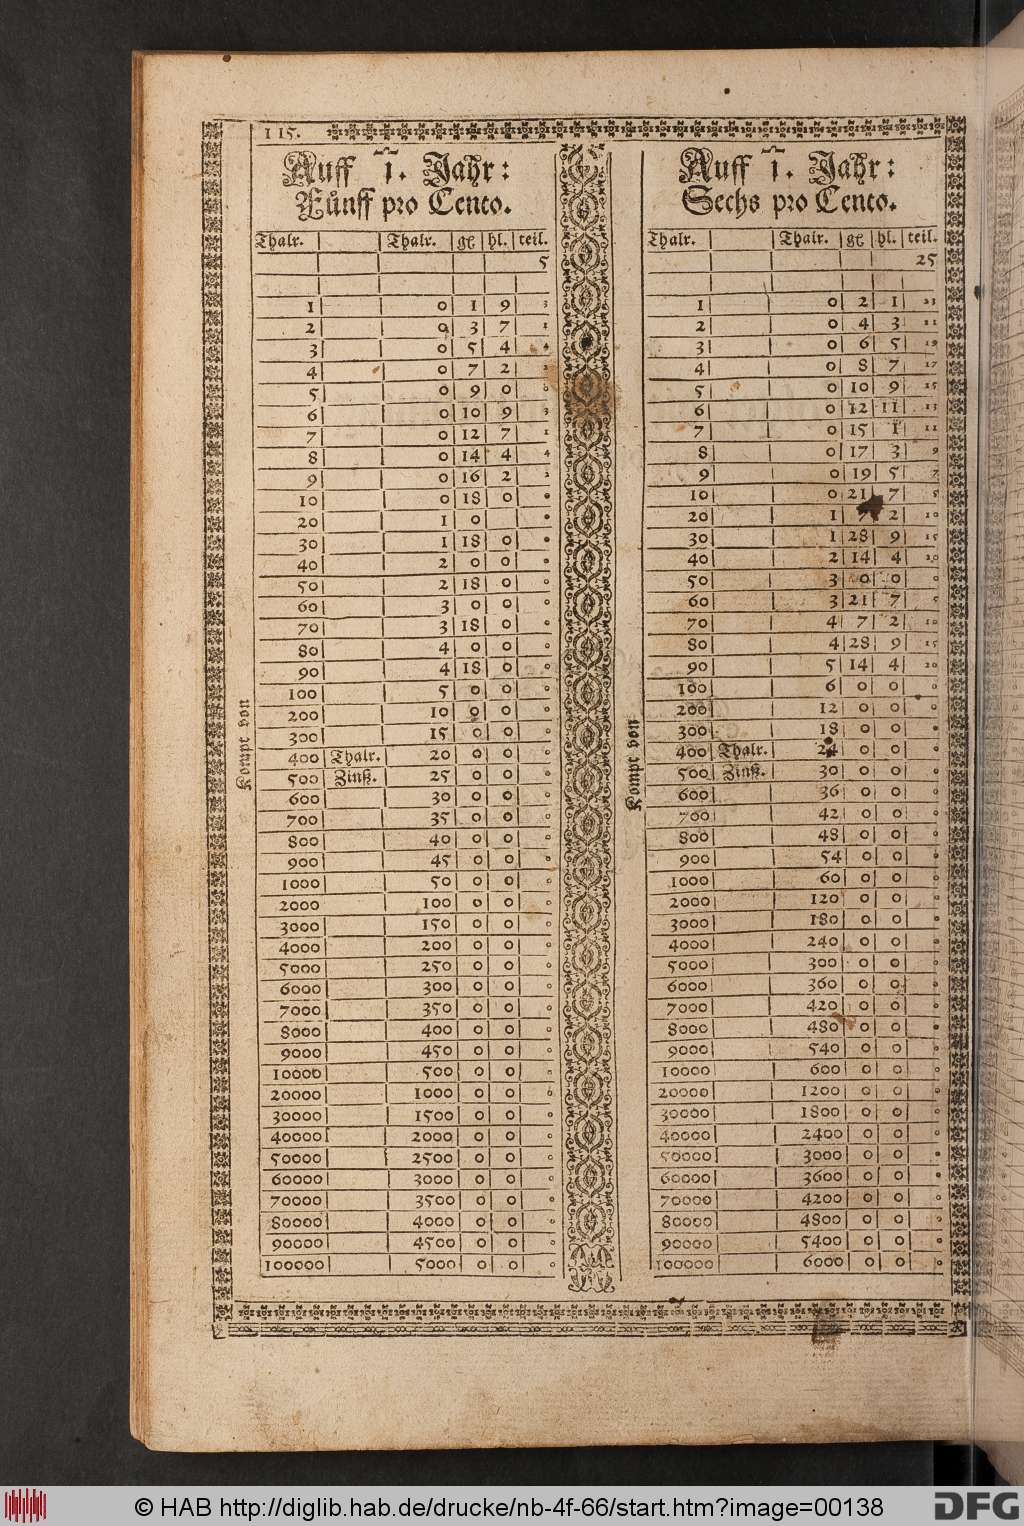 115.
Auff 1. Jahr:
Fünff pro Cento.
Thalr. Thalr. gl hl. teil.
5
1 0 1 9 3
2 0 3 7 1
3 0 5 4 4
4 0 7 2 2
5 0 9 0 0
6 0 10 9 3
7 0 12 7 1
8 0 14 4 4
9 0 16 2 2
10 0 18 0 0
20 1 0 0
30 1 18 0 0
40 2 0 0 0
50 2 18 0 0
60 3 0 0 0
70 3 18 0 0
80 4 0 0 0
90 4 18 0 0
100 5 0 0 0
200 10 0 0 0
300 15 0 0 0
400 Thalr. 20 0 0 0
500 Zinß. 25 0 0 0
600 30 0 0 0
700 35 0 0 0
800 40 0 0 0
900 45 0 0 0
1000 50 0 0 0
2000 100 0 0 0
3000 150 0 0 0
4000 200 0 0 0
5000 250 0 0 0
6000 300 0 0 0
7000 350 0 0 0
8000 400 0 0 0
9000 450 0 0 0
10000 500 0 0 0
20000 1000 0 0 0
30000 1500 0 0 0
40000 2000 0 0 0
50000 2500 0 0 0
60000 3000 0 0 0
70000 3500 0 0 0
80000 4000 0 0 0
90000 4500 0 0 0
100000 5000 0 0 0
Kompt von
Auff 1. Jahr:
Sechs pro Cento.
Thalr. Thalr. gl hl. teil.
25
1 0 2 1 23
2 0 4 3 21
3 0 6 5 19
4 0 8 7 17
5 0 10 9 15
6 0 12 11 13
7 0 15 1 11
8 0 17 3 9
9 0 19 5 7
10 0 21 7 5
20 1 7 2 10
30 1 28 9 15
40 2 14 4 20
50 3 0 0 0
60 3 21 7 5
70 4 7 2 10
80 4 28 9 15
90 5 14 4 20
100 6 0 0 0
200 12 0 0 0
300 18 0 0 0
400 Thalr. 24 0 0 0
500 Zinß. 30 0 0 0
600 36 0 0 0
700 42 0 0 0
800 48 0 0 0
900 54 0 0 0
1000 60 0 0 0
2000 120 0 0 0
3000 180 0 0 0
4000 240 0 0 0
5000 300 0 0 0
6000 360 0 0 0
7000 420 0 0 0
8000 480 0 0 0
9000 540 0 0 0
10000 600 0 0 0
20000 1200 0 0 0
30000 1800 0 0 0
40000 2400 0 0 0
50000 3000 0 0 0
60000 3600 0 0 0
70000 4200 0 0 0
80000 4800 0 0 0
90000 5400 0 0 0
100000 6000 0 0 0
Kompt von
© HAB http://diglib.hab.de/drucke/nb-4f-66/start.htm?image=00138
DFG